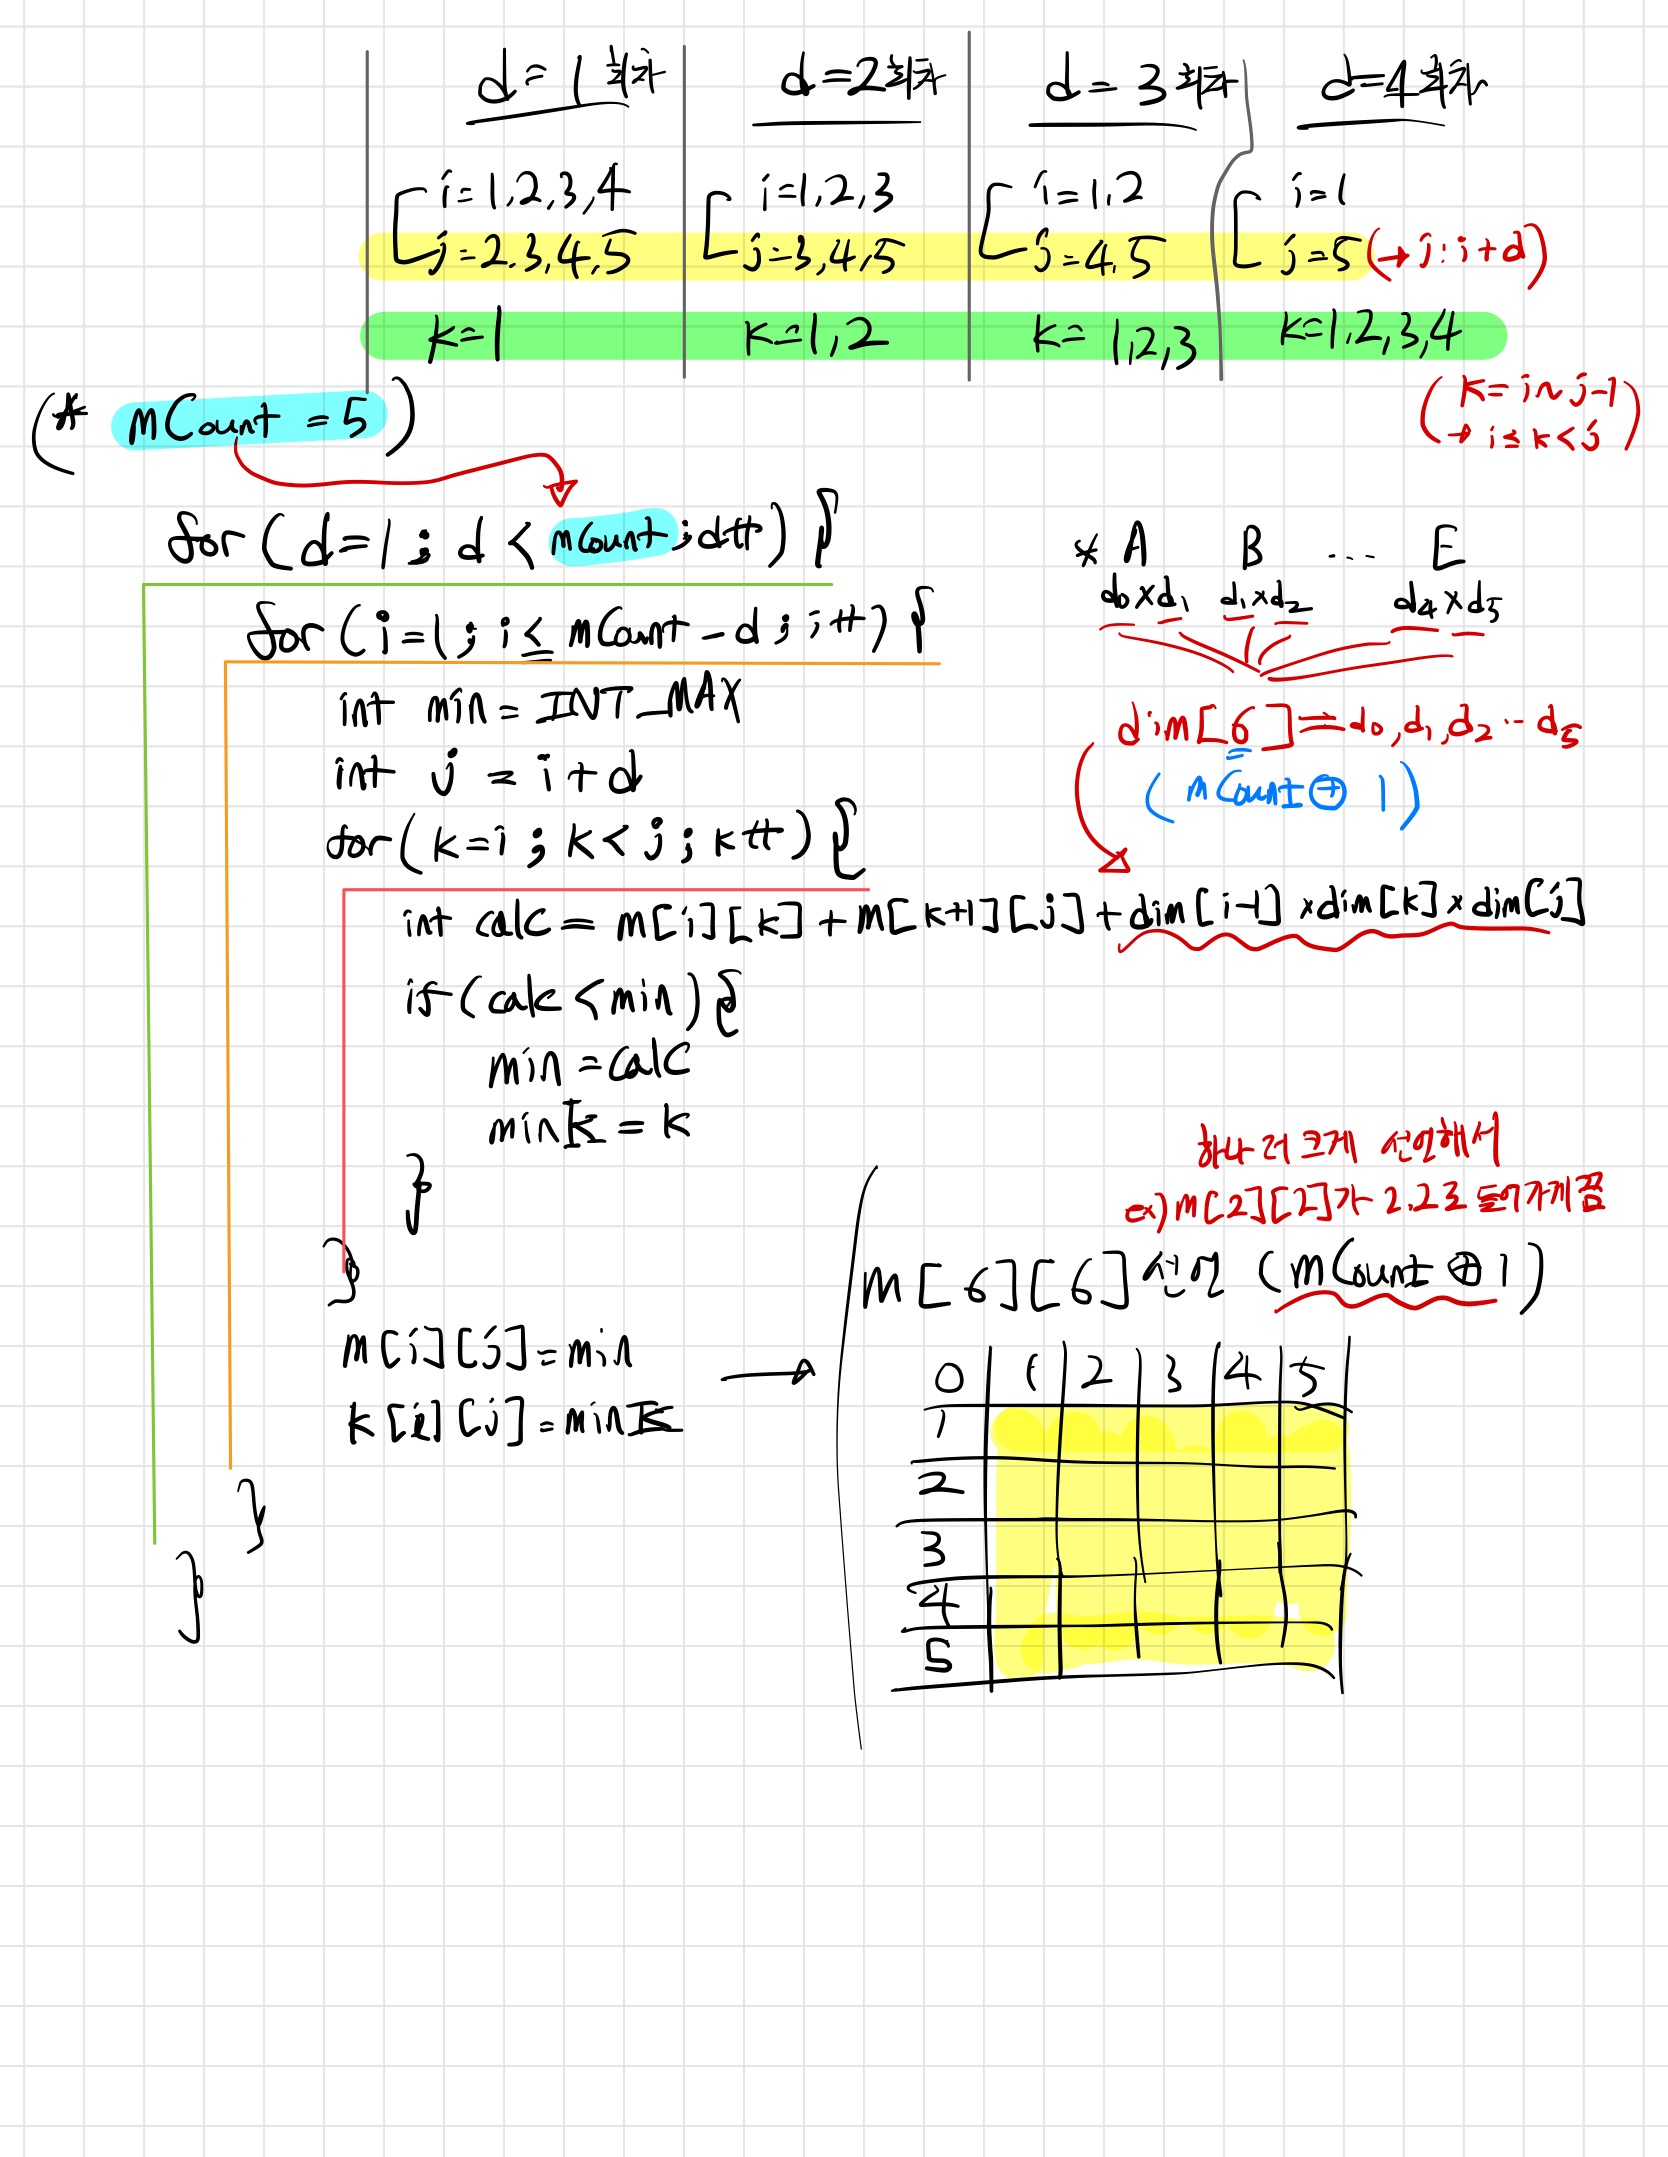 d=1 일때 d=2일때 d=3일때 d=4일때
i=1,2,3,4 i=1,2,3 i=1,2 i=1
j=2.3,4,5 j=3,4,5 j=4,5 j=5 (→ j: i+d)
k=1 k=1,2 k=1,2,3 k=1,2,3,4
(* mCount = 5)
(k=i~j-1
→ i≤k<j)
for (d=1; d < mCount; d++) {
for (i=1; i≤ mCount-d; i++) {
int min = INT_MAX
int j = i+d
for (k=i; k<j; k++) {
int calc = m[i][k] + m[k+1][j] + dim[i-1] × dim[k] × dim[j]
if (calc < min) {
min = calc
minK = k
}
}
m[i][j] = min
k[i][j] = minK
}
}
* A B ... E
d0×d1 d1×d2 d4×d5
dim[6] = d0, d1, d2 ·· d5
(mCount ⊕ 1)
하나 더 크게 선언해서
ex) m[2][2]가 2,2로 들어가게끔
→ m[6][6] 선언 (mCount ⊕ 1)
0 1 2 3 4 5
1
2
3
4
5